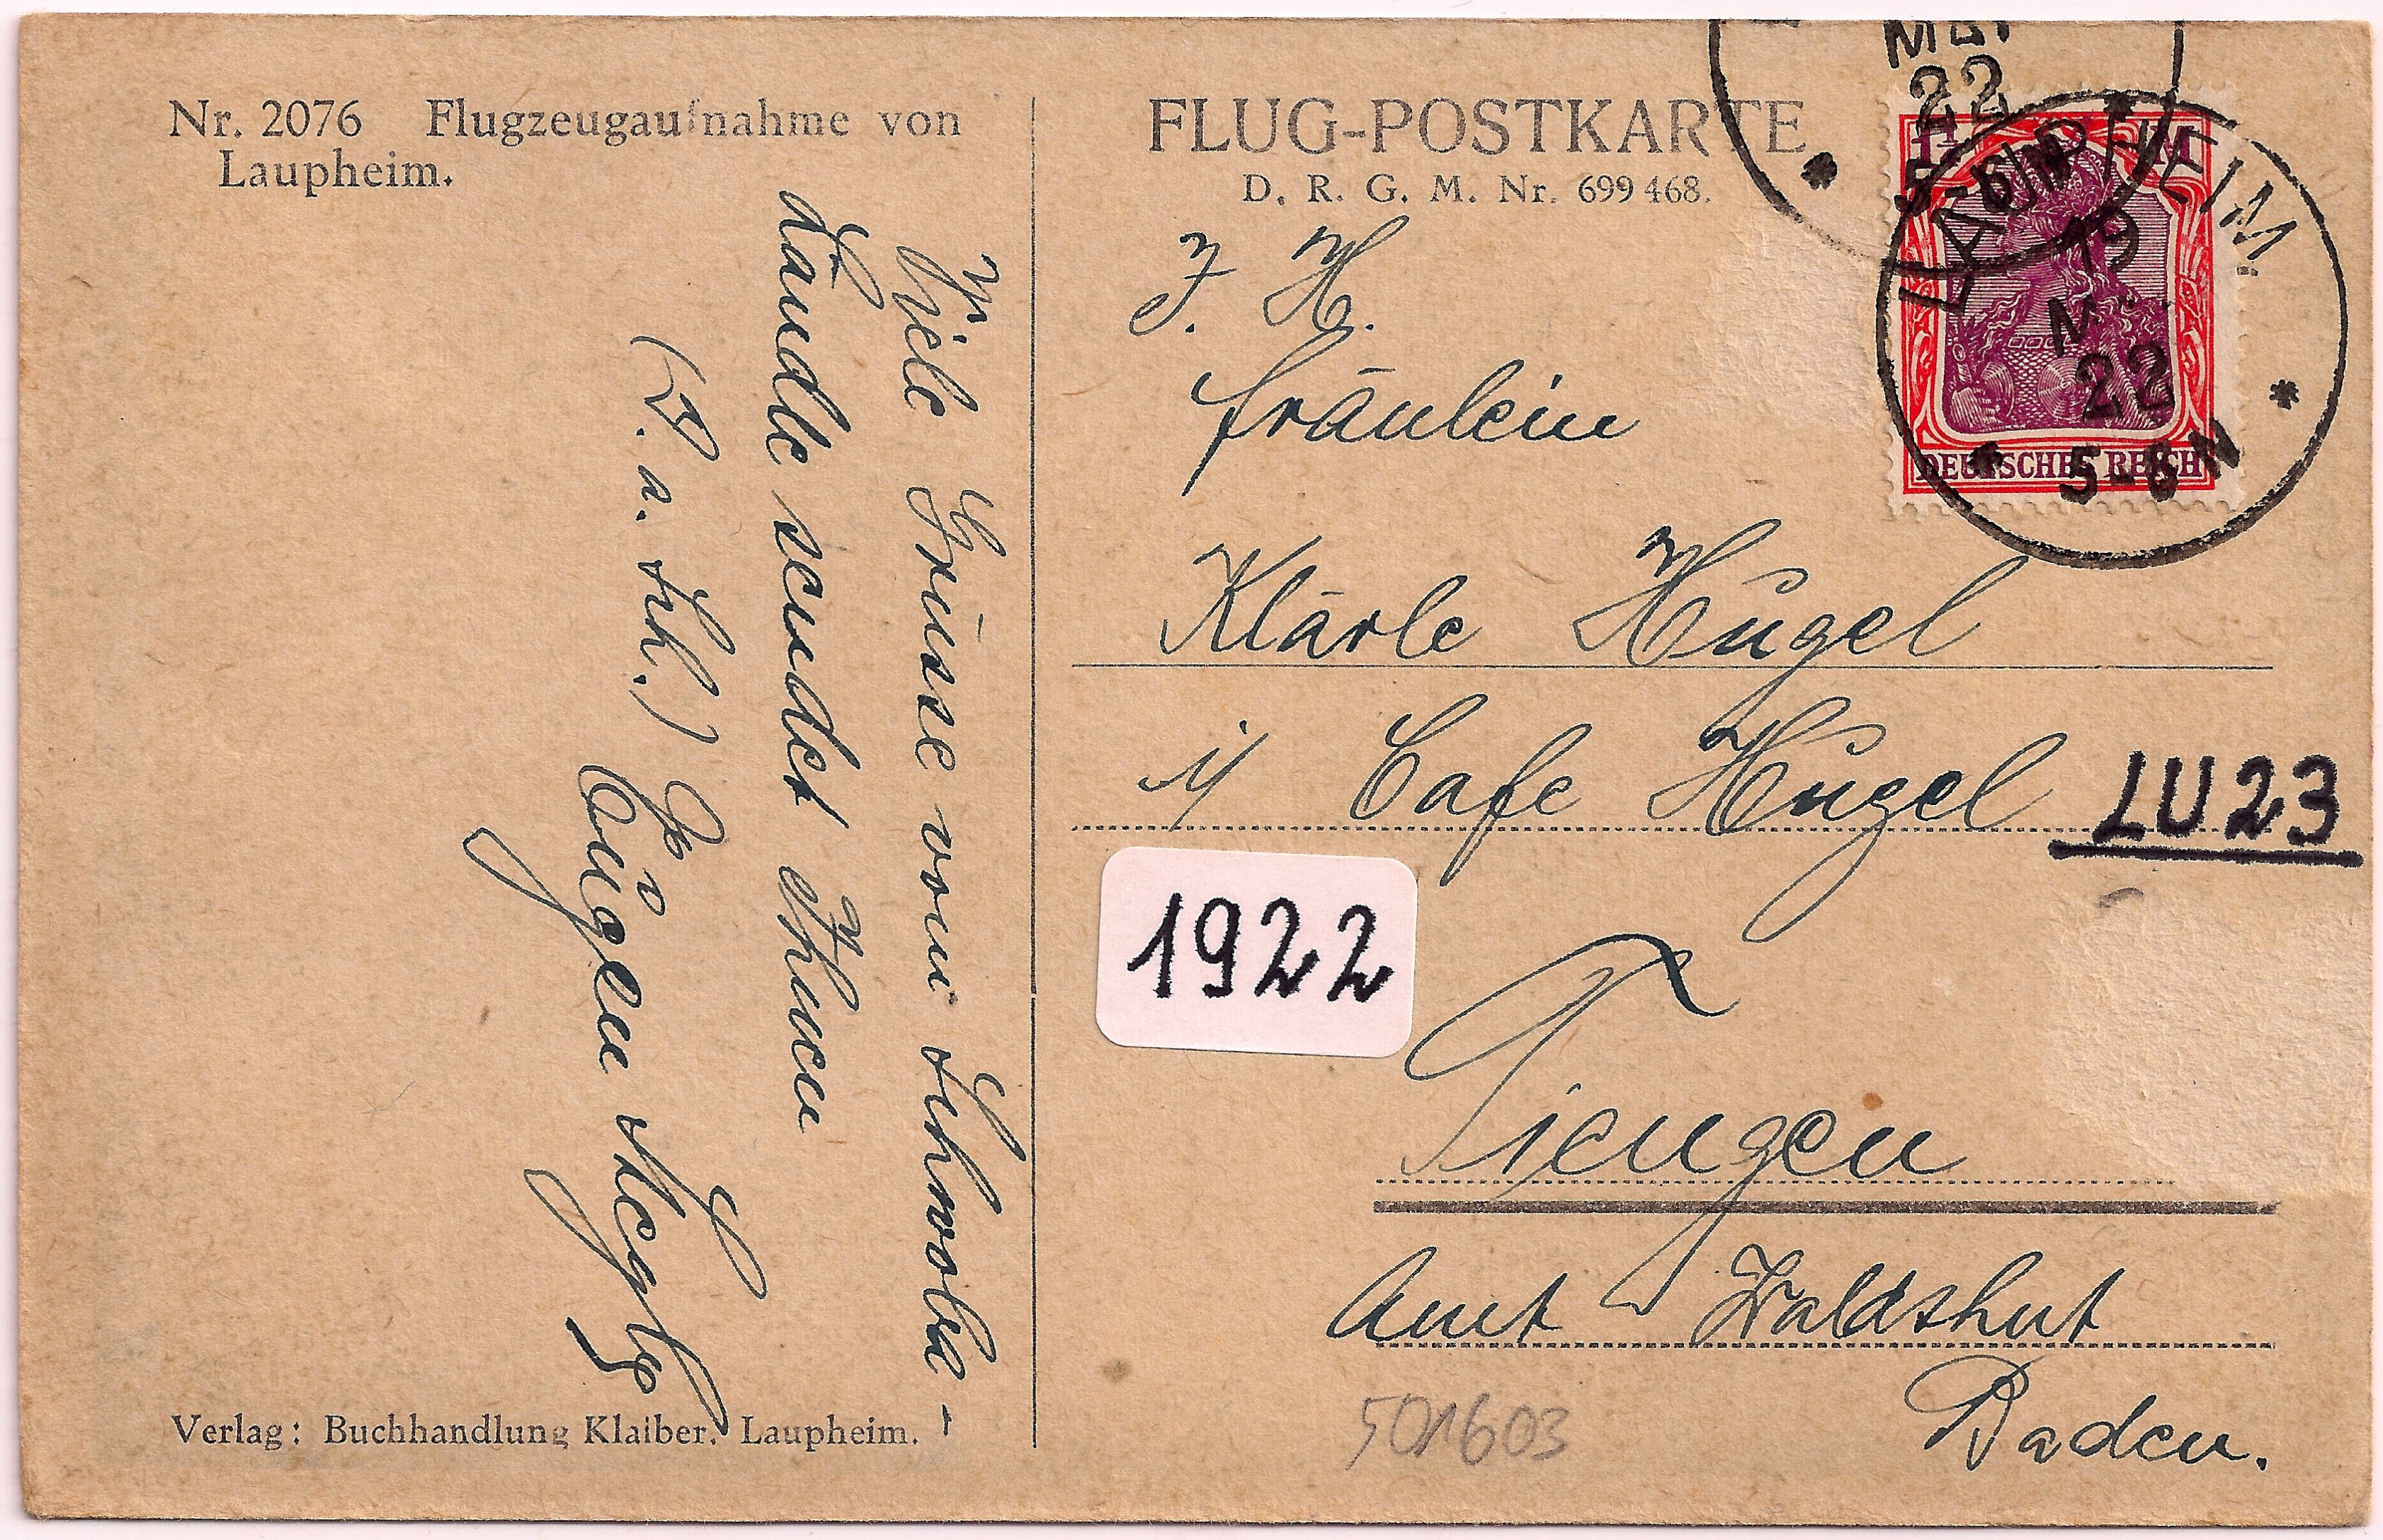 Nr. 2076 Flugzeugaufnahme von
Laupheim.
Viele Grüsse vom Schwoba-
Ländle sendet Ihnen
(D. a. Sch.)
Eugen
FLUG-POSTKARTE
D. R. G. M. Nr. 699 468.
MAI
22
LAUPHEIM
19
MAI
22
5-6 N
DEUTSCHES REICH
I. H.
Fräulein
Klärle Hügel
i/ Cafe Hügel
LU23
1922
Tiengen
Amt Waldshut
Baden.
501603
Verlag: Buchhandlung Klaiber, Laupheim.